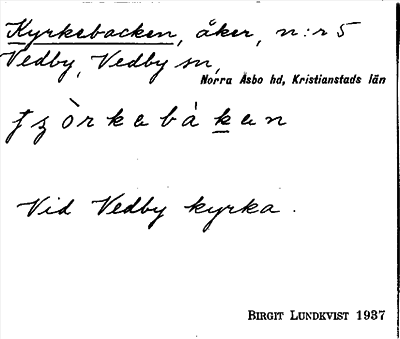 Kyrkebacken, åker, n:r 5
Vedby, Vedby sn,
Norra Åsbo hd, Kristianstads län
Vid Vedby kyrka.
BIRGIT LUNDKVIST 1937